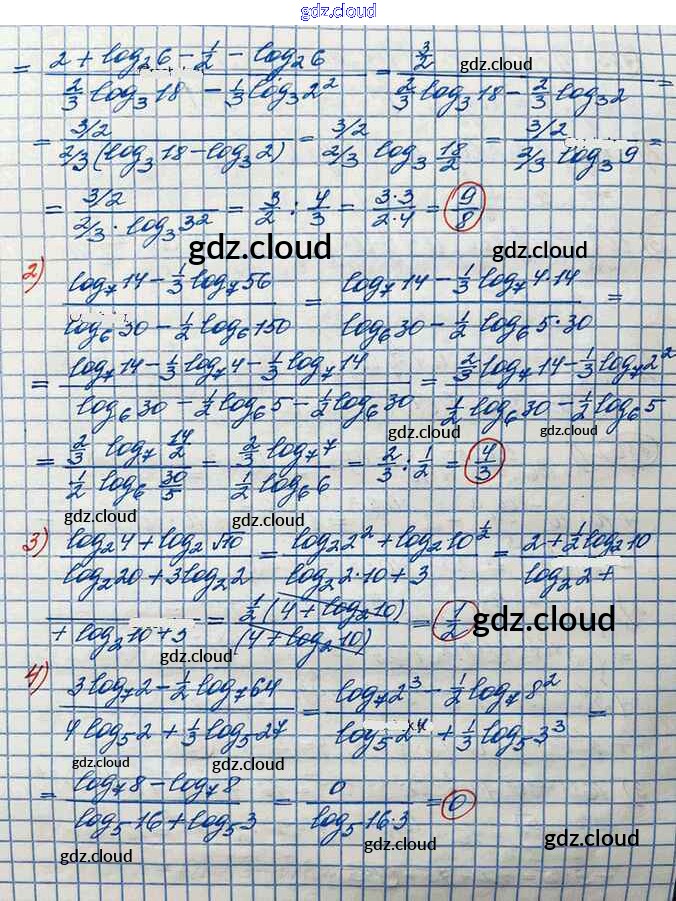 gdz.cloud
= (2 + log₂6 − 1/2 − log₂6) / (2/3 log₃18 − 1/3 log₃2²) = (3/2) / (2/3 log₃18 − 2/3 log₃2) =
gdz.cloud
= (3/2) / (2/3(log₃18 − log₃2)) = (3/2) / (2/3 log₃ 18/2) = (3/2) / (2/3 log₃9) =
= (3/2) / (2/3 · log₃3²) = 3/2 : 4/3 = (3·3)/(2·4) = 9/8
gdz.cloud gdz.cloud
2) (log₇14 − 1/3 log₇56) / (log₆30 − 1/2 log₆150) = (log₇14 − 1/3 log₇4·14) / (log₆30 − 1/2 log₆5·30) =
= (log₇14 − 1/3 log₇4 − 1/3 log₇14) / (log₆30 − 1/2 log₆5 − 1/2 log₆30) = (2/3 log₇14 − 1/3 log₇2²) / (1/2 log₆30 − 1/2 log₆5)
gdz.cloud gdz.cloud
= (2/3 log₇ 14/2) / (1/2 log₆ 30/5) = (2/3 log₇7) / (1/2 log₆6) = 2/3 : 1/2 = 4/3
gdz.cloud gdz.cloud
3) (log₂4 + log₂√10) / (log₂20 + 3log₂2) = (log₂2² + log₂10^(1/2)) / (log₂2·10 + 3) = (2 + 1/2 log₂10) / (log₂2 +
+ log₂10 + 3) = (1/2(4 + log₂10)) / ((4 + log₂10)) = 1/2
gdz.cloud
gdz.cloud
4) (3log₇2 − 1/2 log₇64) / (4log₅2 + 1/3 log₅27) = (log₇2³ − 1/2 log₇8²) / (log₅2⁴ + 1/3 log₅3³) =
gdz.cloud gdz.cloud
= (log₇8 − log₇8) / (log₅16 + log₅3) = 0 / (log₅16·3) = 0
gdz.cloud gdz.cloud gdz.cloud